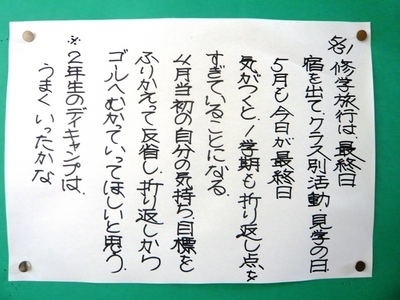 5/31 修学旅行は、最終日
宿を出て、クラス別活動・見学の日.
5月も今日が最終日
気がつくと、1学期も折り返し点を
すぎていることになる.
4月当初の自分の気持ち、目標を
ふりかえって反省し、折り返しから
ゴールへむかっていってほしいと思う.
※2年生のデイキャンプは、
うまくいったかな